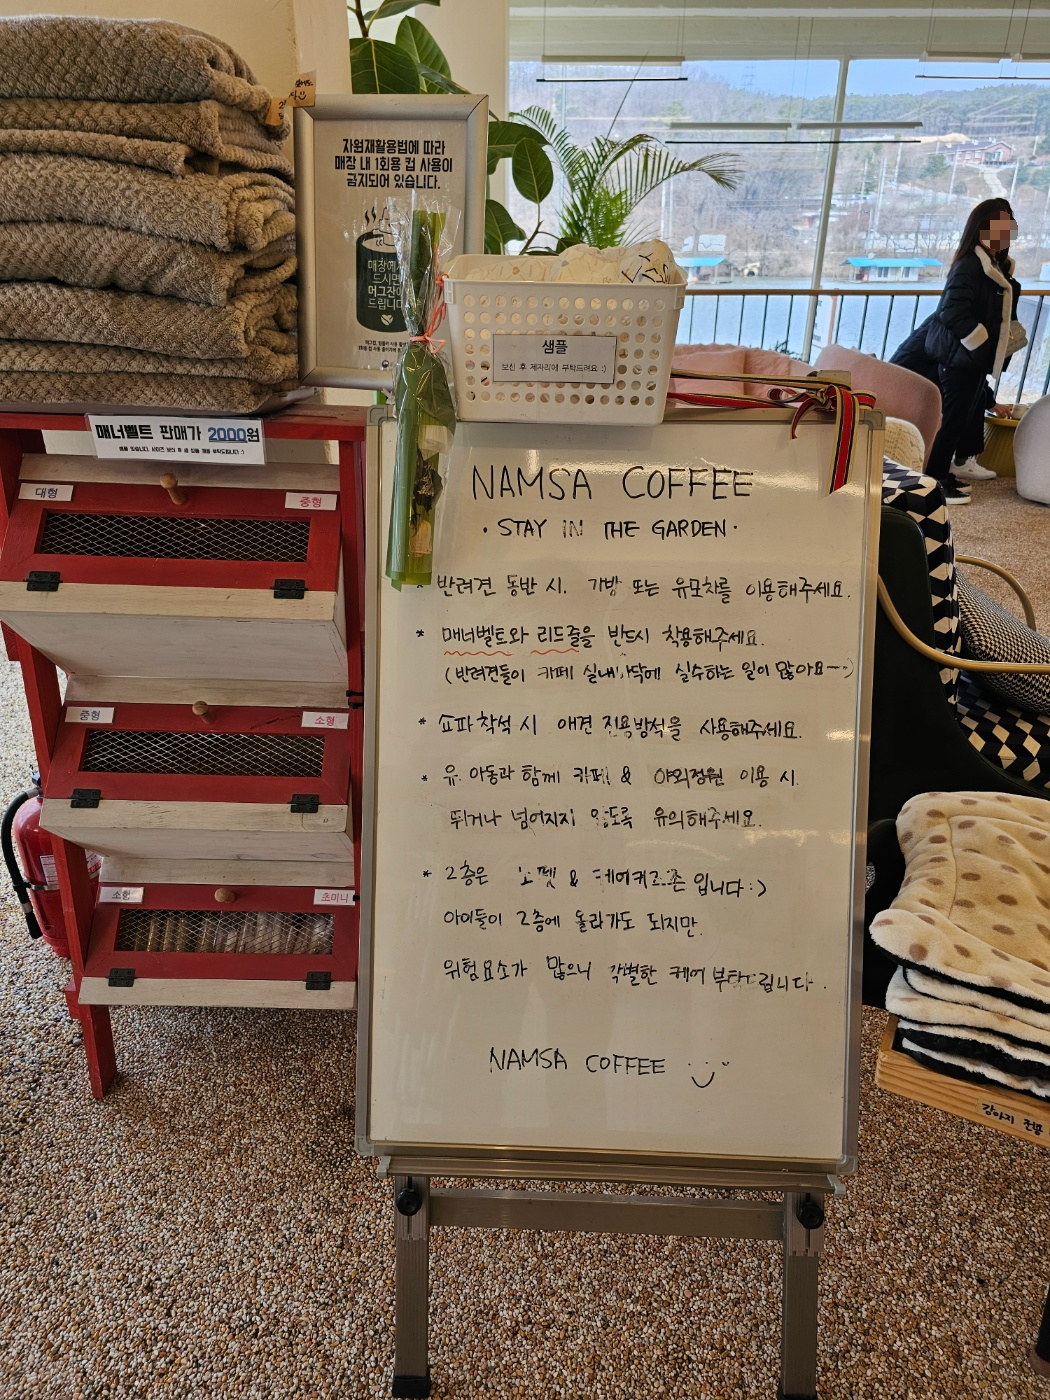 자원재활용법에 따라
매장 내 1회용 컵 사용이
금지되어 있습니다.
매장에서
드시면
머그잔에
드립니다
샘플
보신 후 제자리에 부탁드려요 :)
매너벨트 판매가 2000원
대형
중형
중형
소형
소형
초미니
NAMSA COFFEE
· STAY IN THE GARDEN ·
* 반려견 동반 시. 가방 또는 유모차를 이용해주세요.
* 매너벨트와 리드줄을 반드시 착용해주세요.
(반려견들이 카페 실내바닥에 실수하는 일이 많아요~:)
* 쇼파 착석 시 애견 전용방석을 사용해주세요.
* 유·아동과 함께 카페 & 야외정원 이용 시.
뛰거나 넘어지지 않도록 유의해주세요.
* 2층은 노펫 & 케어키즈존 입니다 :)
아이들이 2층에 올라가도 되지만.
위험요소가 많으니 각별한 케어 부탁드립니다.
NAMSA COFFEE
강아지 전용